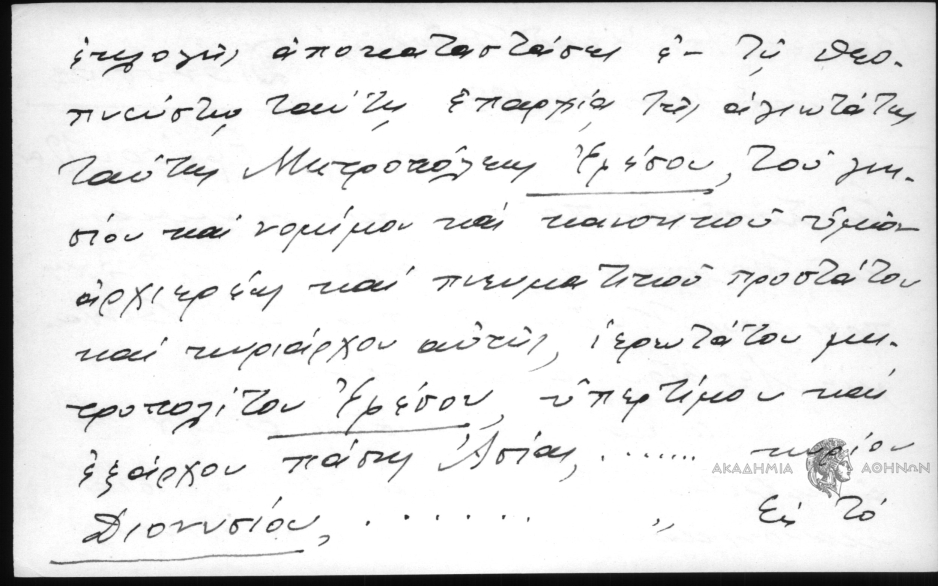 ἐκλογῆς ἀποκαταστάσης ἐν τῇ θεο-
πνεύστῳ ταύτῃ ἐπαρχίᾳ τῆς ἁγιωτάτης
ταύτης Μητροπόλεως Ἐφέσου, τοῦ γνη-
σίου καὶ νομίμου καὶ κανονικοῦ ὑμῶν
ἀρχιερέως καὶ πνευματικοῦ προστάτου
καὶ κυριάρχου αὐτῆς, ἱερωτάτου μη-
τροπολίτου Ἐφέσου, ὑπερτίμου καὶ
ἐξάρχου πάσης Ἀσίας, ....... κυρίου
Διονυσίου, ....... " Εἰς τὸ
ΑΚΑΔΗΜΙΑ ΑΘΗΝΩΝ